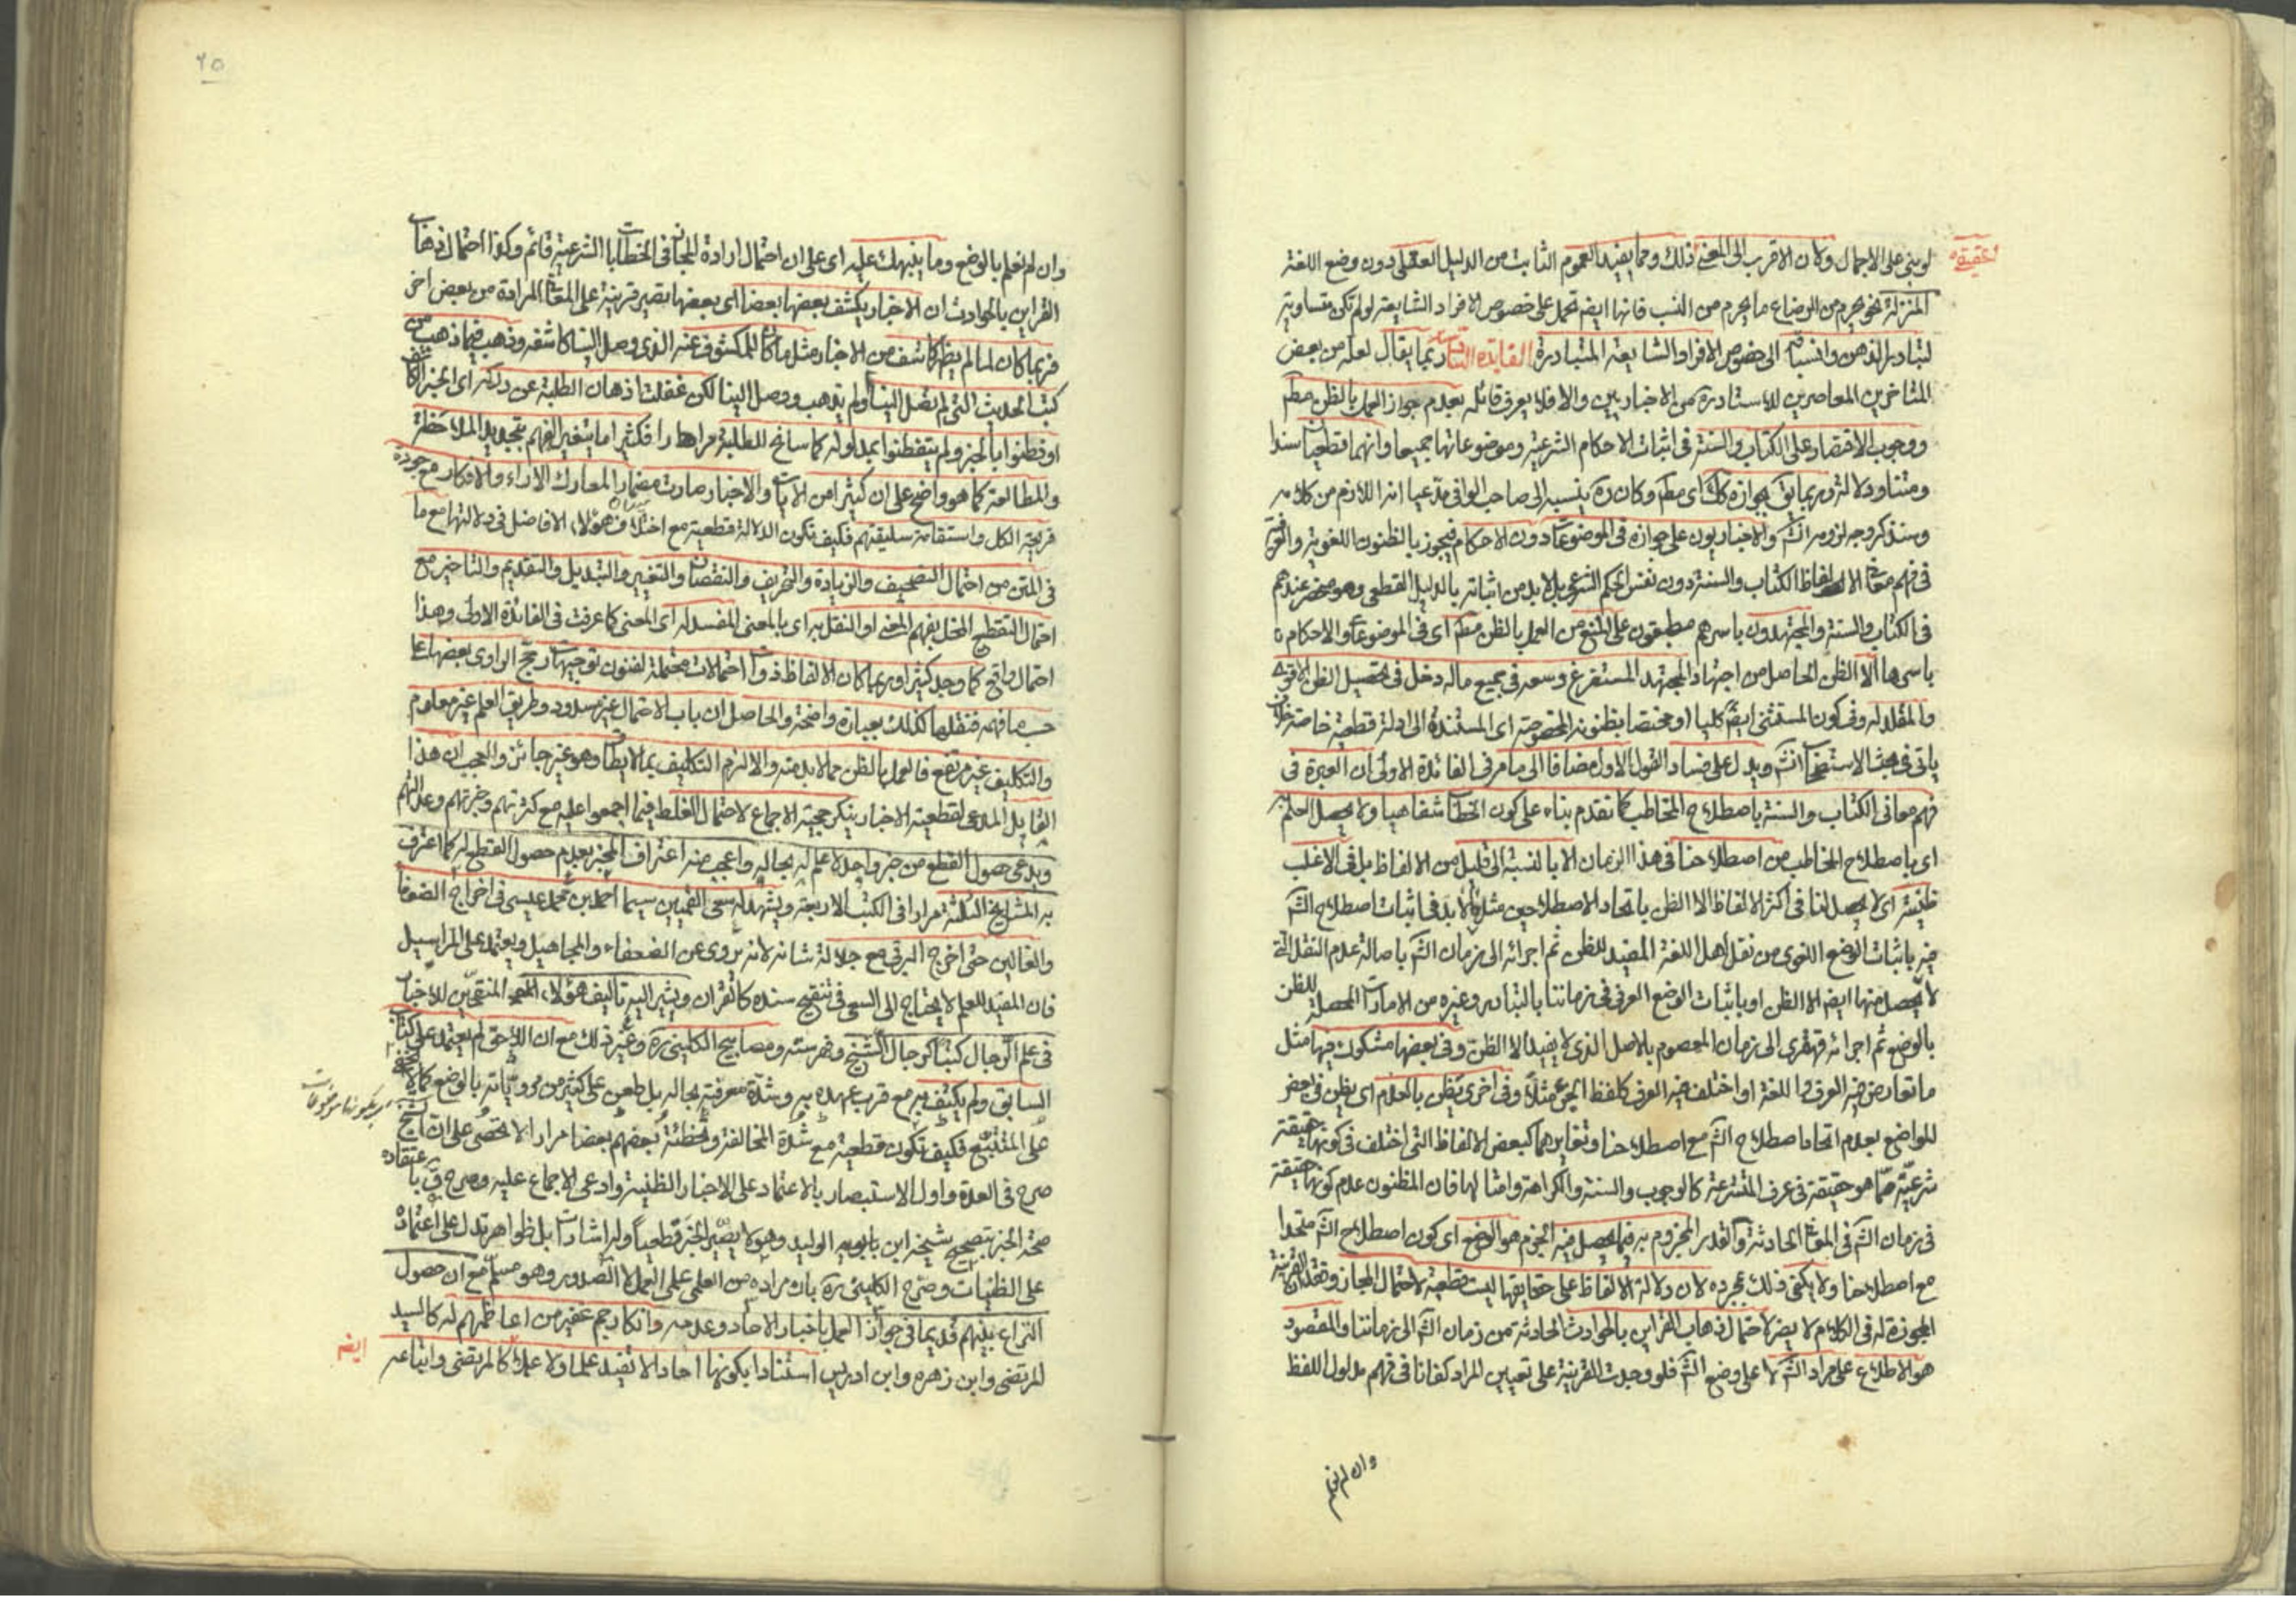 لو بنى على الاجمال وكان الاقرب الى المعنى ذلك ومما يفيد العموم الثابت من الدليل العقلى دون وضع اللغة
الحقيقة
المنزلة نحو يحرم من الرضاع ما يحرم من النسب فانها ايضا تحمل على خصوص الافراد الشايعة لو لم تكن متساوية
لتبادر الذهن وانسباقه الى خصوص الافراد الشايعة المتبادرة الفايده الثانية ربما يقال لعله من بعض
المتاخرين المعاصرين للاستاد ره من الاخباريين والا فلا يعرف قائله بعدم جواز العمل بالظن مطم
ووجوب الاقتصار على الكتاب والسنة فى اثبات الاحكام الشرعية وموضوعاتها جميعا وانهما قطعيان سندا
ومتنا ودلالة وربما يق بجوازه كك اى مطم وكان ره ينسبه الى صاحب الوافى مدعيا انه اللازم من كلامه
وسنذكر وجه لزومه انش والاخباريون على جوازه فى الموضوعات دون الاحكام فيجوز بالظنون اللغوية والعرفية
فى فهم معانى الالفاظ الكتاب والسنة دون نفس الحكم الشرعى بل لابد من اثباته بالدليل القطعى وهو منحصر عندهم
فى الكتاب والسنة والمجتهدون باسرهم مطبقون على المنع من العمل بالظن مطم اى فى الموضوعات والاحكام
باسرها الا الظن الحاصل من اجتهاد المجتهد المستفرغ وسعه فى جميع ماله دخل فى تحصيل الظن الاقوى
والمقلد له وفى كون المستثنى ايضا كليا او مختصا بظنونه المخصوصة اى المستندة الى ادلة قطعية خاصة خلاف
ياتى فى بحث الاستصحاب انش ويدل على فساد القول الاول مضافا الى ما مر فى الفائدة الاولى ان العبرة فى
فهم معانى الكتاب والسنة باصطلاح المخاطب كما تقدم بناء على كون الخطاب شفاهيا ولا يحصل العلم به
اى باصطلاح المخاطب من اصطلاحنا فى هذا الزمان الا بالنسبة الى قليل من الالفاظ بل فى الاغلب
ظنية اى لا يحصل لنا فى اكثر الالفاظ الا الظن باتحاد الاصطلاحين مثلا لابد فى اثبات اصطلاح الش
فيه باثبات الوضع اللغوى من نقل اهل اللغة المفيد للظن ثم اجرائه الى زمان الش باصالة عدم النقل التى
لا يحصل منها ايضا الا الظن او باثبات الوضع العرفى فى زماننا بالتبادر وغيره من الامارات المحصلة للظن
بالوضع ثم اجرائه قهقرى الى زمان المعصوم بالاصل الذى لا يفيد الا الظن وفى بعضها مشكوك فيها مثل
ما تعارض فيه العرف واللغة او اختلف فيه العرف كلفظ الجر مثلا وفى اخرى يظن بالعدم اى يظن فى بعض
المواضع بعدم اتحاد اصطلاح الش مع اصطلاحنا وتغايرهما كبعض الالفاظ التى اختلف فى كونها حقيقة
شرعية مما هو حقيقة فى عرف المتشرعة كالوجوب والسنة والكراهة وامثالها فان المظنون عدم كونها حقيقة
فى زمان الش فى المعانى الحادثة والقدر المجزوم به فيما يحصل فيه الجزم هو الوضع اى كون اصطلاح الش متحدا
مع اصطلاحنا ولا يكفى ذلك بمجرده لان دلالة الالفاظ على حقايقها ليست قطعية لاحتمال المجاز وفقدان القرينة
المجوزة له فى الكلام لا يضر لاحتمال ذهاب القراين بالحوادث الحادثة من زمان الش الى زماننا والمقصود
هو الاطلاع على مراد الش لا على وضع الش فلو وجدت القرينة على تعيين المراد كفانا فى فهم مدلول اللفظ
وان لم نعلم
٢٥
وان لم نعلم بالوضع وما ينبهك عليه اى على ان احتمال ارادة المجاز فى الخطابات الشرعية قائم وكذا احتمال ذهاب
القراين بالحوادث ان الاخبار يكشف بعضها بعضا اى بعضها يصير قرينة على المعانى المرادة من بعض اخر
فربما كان لما لم يظهر كاشف من الاخبار مثل ما كان للمكشوف عنه الذى وصل الينا كاشفه وذهب فيما ذهب من
كتب الحديث التى لم تصل الينا او لم يذهب ووصل الينا لكن غفلت اذهان الطلبة عن دركه اى الخبر الكاشف
او فطنوا بالخبر ولم يتفطنوا بمدلوله كما سانح للطلبة مرارا فكثيرا ما يتغير الفهم بتجديد الملاحظة
والمطالعة كما هو واضح على ان كثيرا من الايات والاخبار صارت مضمار المعارك الاراء والافكار مع جودة
قريحة الكل واستقامة سليقتهم فكيف تكون الدلالة قطعية مع اختلاف هؤلاء الافاضل فى دلالتها مع ما
فى المتن من احتمال التصحيف والزيادة والتحريف والنقصان والتغيير والتبديل والتقديم والتاخير مع
احتمال التقطيع المخل بفهم المعنى او النقل به اى بالمعنى المفسد له اى المعنى كما عرفت فى الفائدة الاولى وهذا
احتمال واقع كما وجد كثيرا وربما كان الالفاظ ذوات احتمالات محتملة لفنون توجيهات رجح الراوى بعضها على
حسب ما فهمه فنقلها كذلك بعبارة واضحة والحاصل ان باب الاحتمال غير مسدود وطريق العلم غير معلوم
والتكليف غير مرتفع فالعمل بالظن مما لابد منه والا لزم التكليف بما لا يطاق وهو غير جائز والعجب ان هذا
القايل المدعى لقطعية الاخبار ينكر حجية الاجماع لاحتمال الغلط فيما اجمعوا عليه مع كثرتهم وخبرتهم وعدالتهم
ويدعى حصول القطع من خبر واحد لا علم له بحاله واعجب منه اعتراف المخبر بعدم حصول القطع له كما اعترف
به المشايخ الثلثة مرارا فى الكتب الاربعة ويشهد له سعى القميين سيما احمد بن محمد بن عيسى فى اخراج الضعفا
والغالين حتى اخرج البرقى مع جلالة شانه لانه يروى عن الضعفاء والمجاهيل ويعتمد على المراسيل
فان المفيد للعلم لا يحتاج الى السعى فى تنقيح سنده كالقران ويشير اليه تاليف هؤلاء المنتقدين للاخبار
فى علم الرجال كتبا كرجال الشيخ وفهرسته ومصابيح الكلينى ره وغير ذلك مع ان اللاحق لم يعتمد على كتاب
السابق ولم يكتف به مع قرب عهده به وشدة معرفته بحاله بل طعن على كثير من مروياته بالوضع كما لا يخفى
على المتتبع فكيف تكون قطعية مع شدة المخالفة وتخطئة بعضهم بعضا مرارا لا تحصى على ان الشيخ
صرح فى العدة واول الاستبصار بالاعتماد على الاخبار الظنية وادعى الاجماع عليه وصرح ق باعتقاده
صحة الخبر بتصحيح شيخه ابن الوليد وهو لا يصير الخبر قطعيا وله اشارات بل ظواهر تدل على اعتماده
على الظنيات وصرح الكلينى ره بان مراده من العلمى علمى العمل لا الصدور وهو مسلم مع ان حصول
النزاع بينهم قديما فى جواز العمل باخبار الاحاد وعدمه وانكار جم غفير من اعاظمهم له كالسيد
المرتضى وابن زهره وابن ادريس استنادا بكونها احادا لا تفيد علما ولا عملا كالمرتضى واتباعه
ايضا